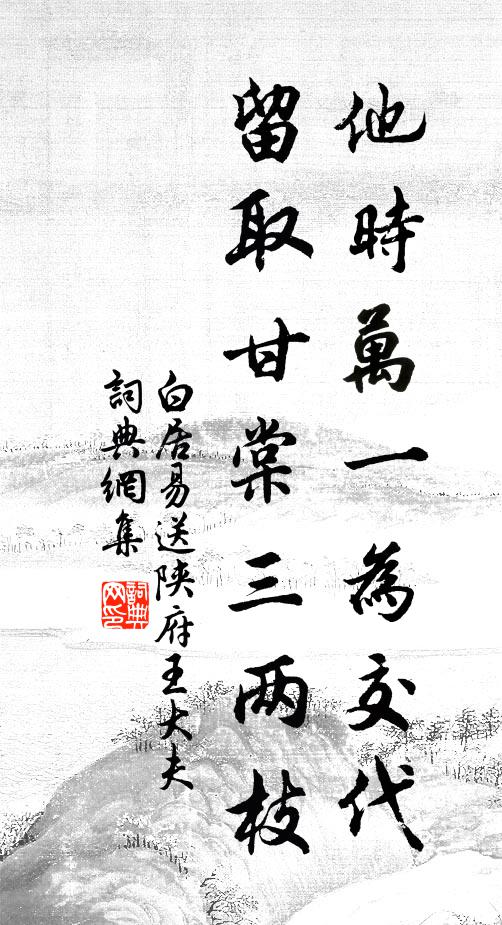 他時萬一為交代
留取甘棠三两枝
白居易送陕府王大夫
詞典網集
詞典网印